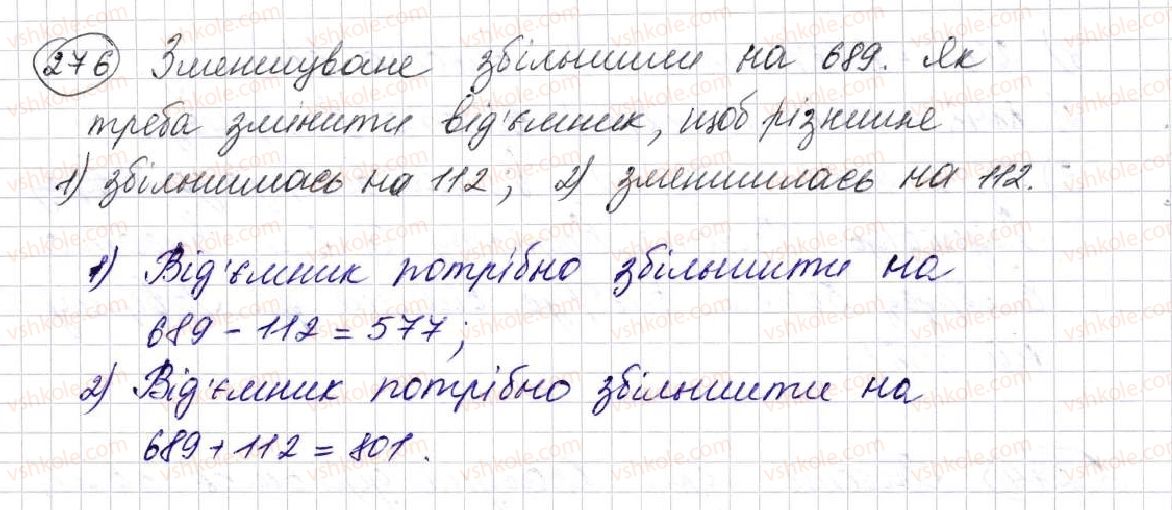 276 Зменшуване збільшили на 689. Як
треба змінити від'ємник, щоб різниця
1) збільшилась на 112; 2) зменшилась на 112.
1) Від'ємник потрібно збільшити на
689 - 112 = 577;
2) Від'ємник потрібно збільшити на
689 + 112 = 801.